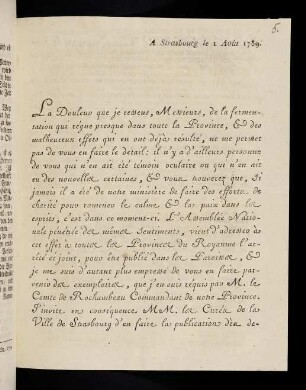 5.
A Strasbourg le 1 Août 1789.
La Douleur que je ressens, Messieurs, de la fermen-
tation qui règne presque dans toute la Province, & des
malheureux effets qui en ont déja résulté, ne me permet
pas de vous en faire le détail; il n'y a d'ailleurs personne
de vous qui n'en ait été témoin oculaire ou qui n'en ait
eu des nouvelles certaines, & vous trouverez que, Si
jamais il a été de notre ministère de faire des efforts de
charité pour ramener le calme & la paix dans les
esprits, c'est dans ce moment-ci. L'Assemblée Natio-
nale pénétrée des mêmes Sentiments, vient d'adresser à
cet effet à toutes les Provinces du Royaume l'ar-
rêté ci joint, pour être publié dans les Paroisses, &
je me suis d'autant plus empressé de vous en faire par-
venir des exemplaires, que j'en suis requis par M. le
Comte de Rochambeau Commandant de notre Province.
J'invite en conséquence M.M. les Curés de la
Ville de Strasbourg d'en faire la publication dès de-